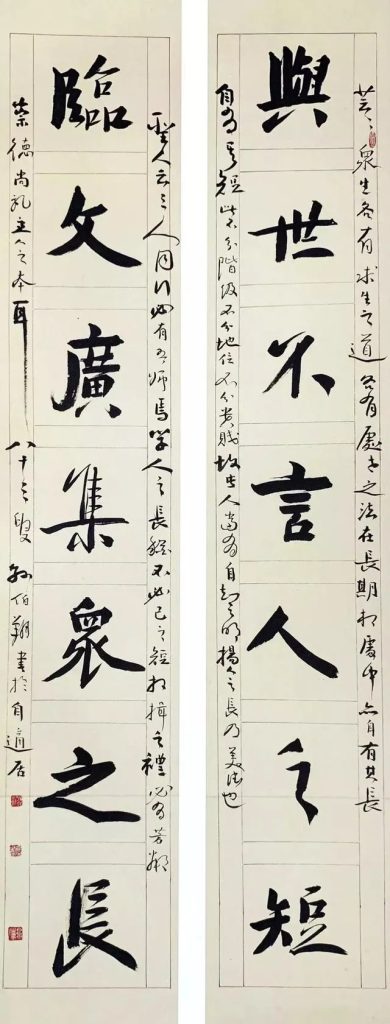 芸々眾生各有求生之道各有處世之法在長期相處中亦自有其長
與世不言人之短
自有其短此不分階級不分地位不分貴賤故吾人當有自知之明揚人之長乃美德也
聖人云三人同行必有吾師焉學人之長不必己之短相揖之禮必為芳鄰
臨文廣集眾之長
崇德尚礼主人之本耳 八十三叟 孫伯翔書於自適居